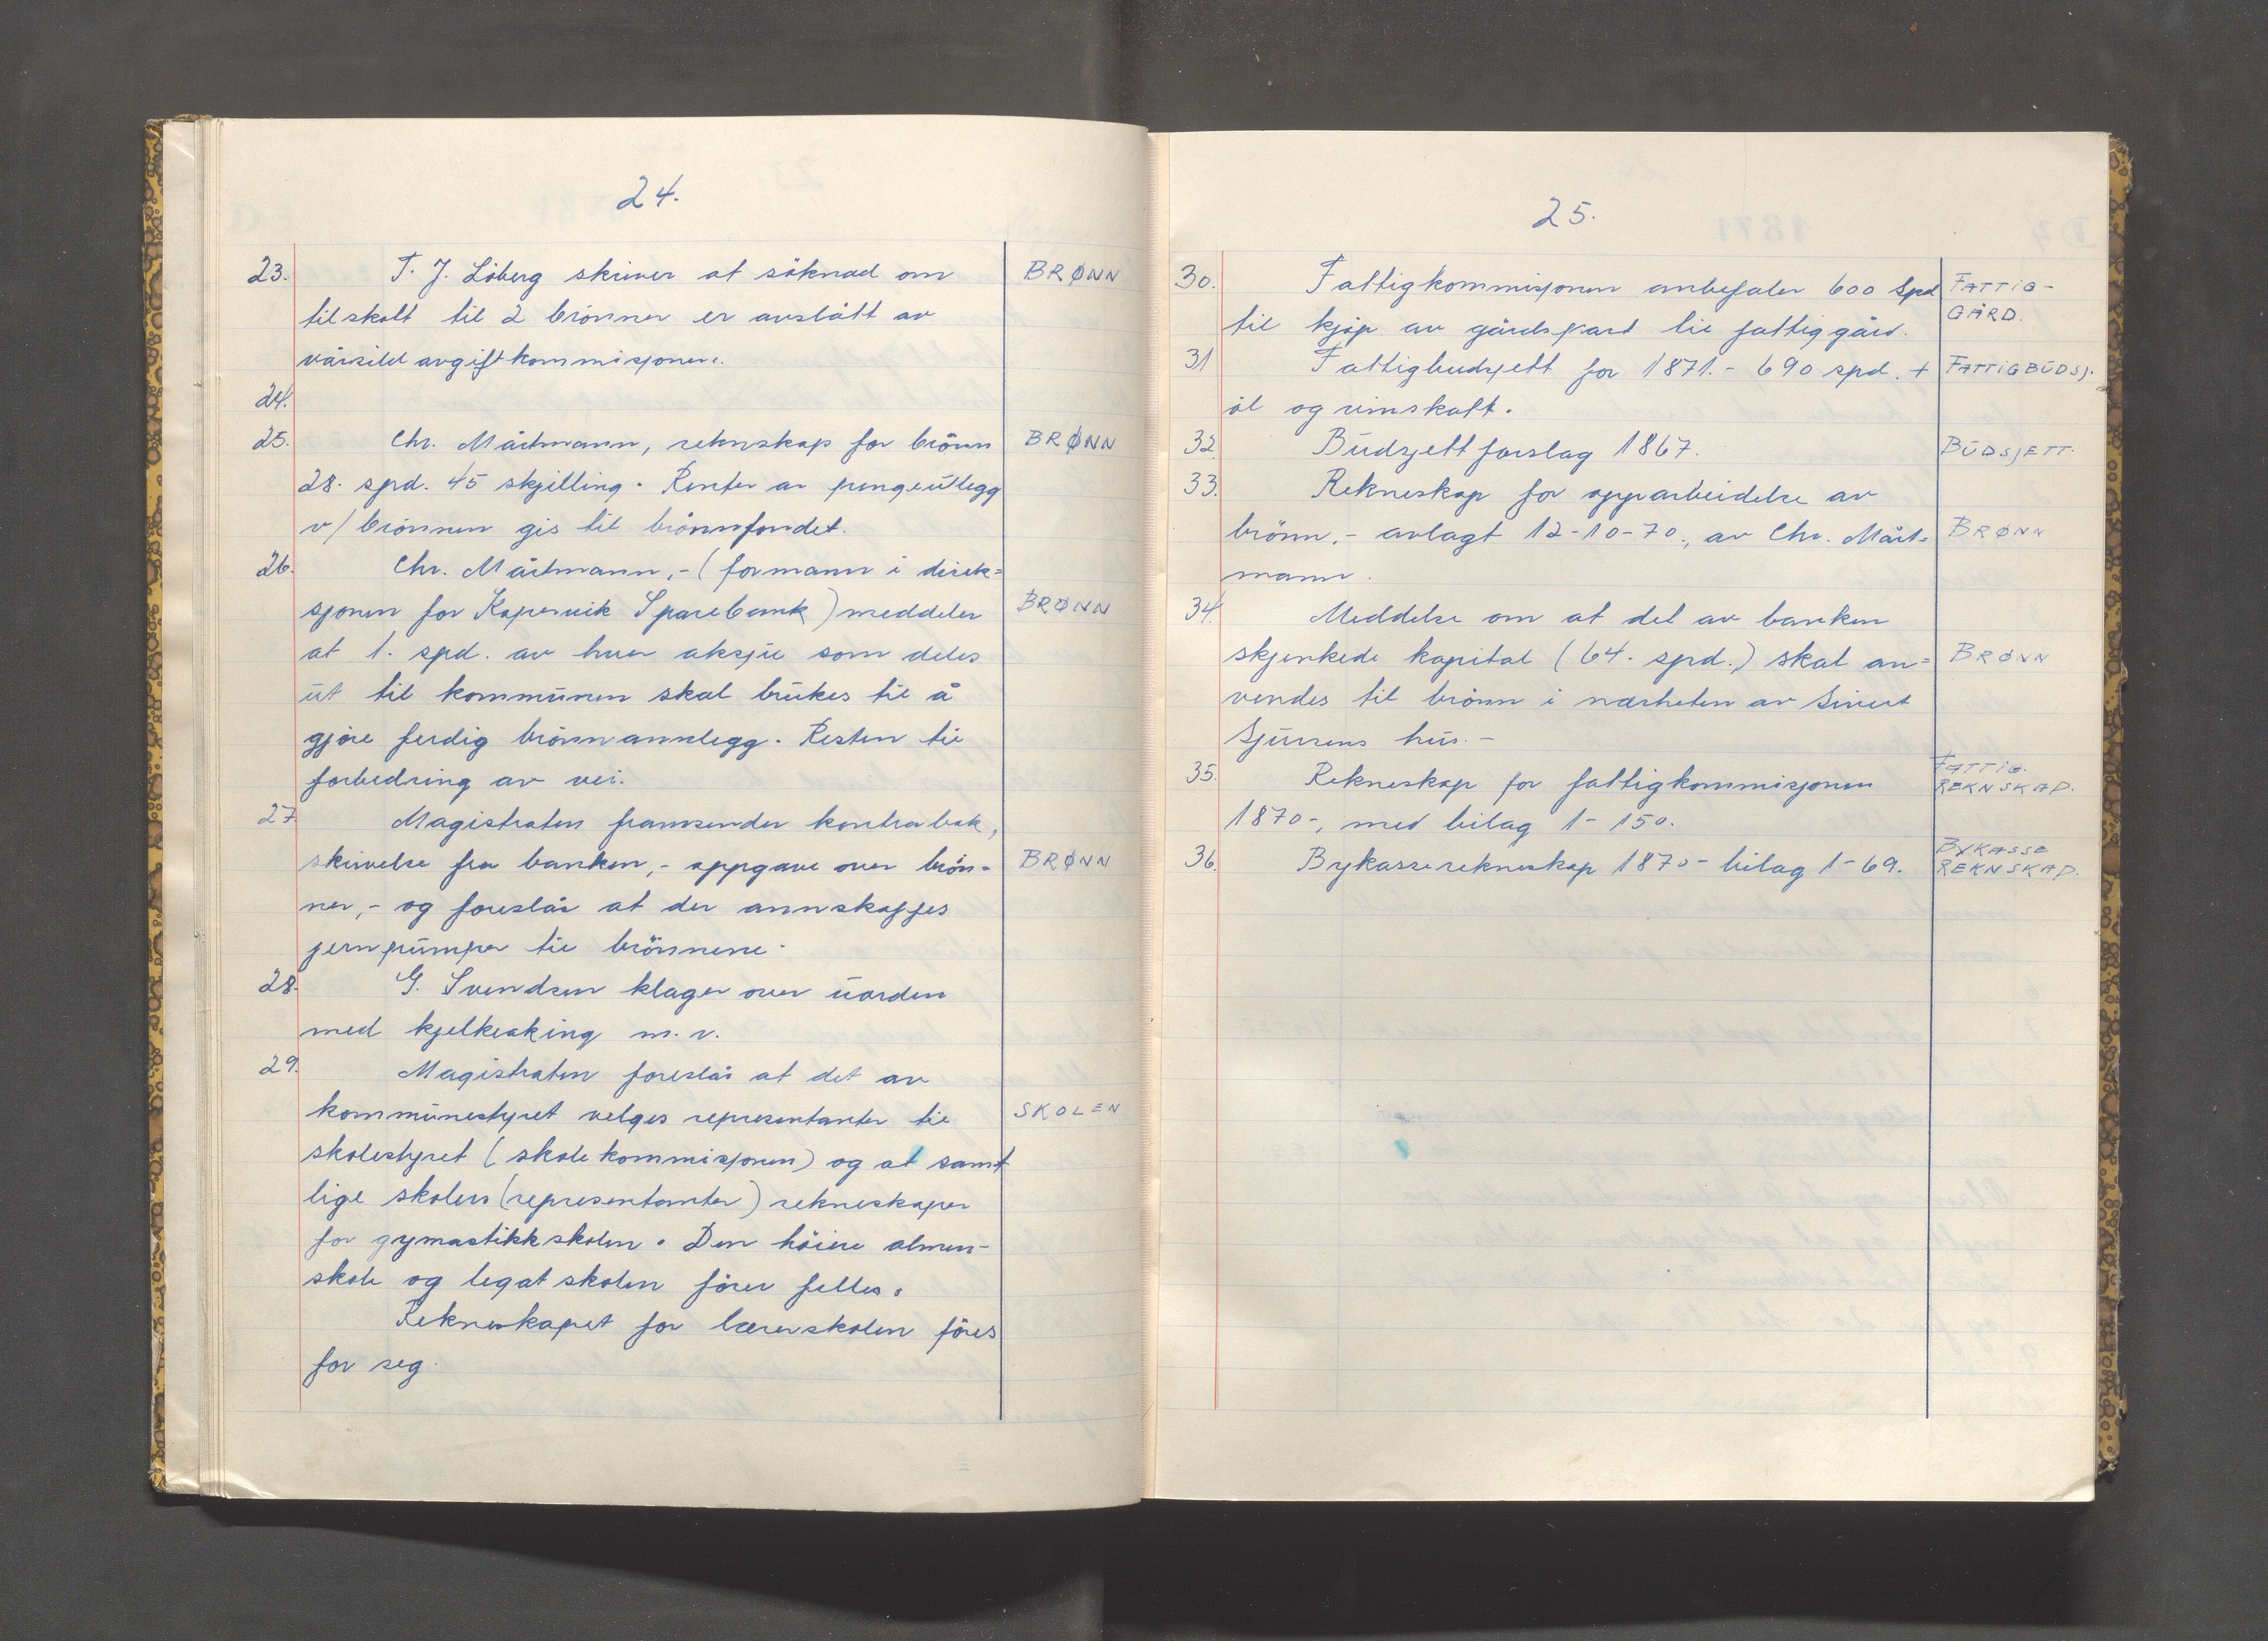 24.
23. T. J. Löberg skriver at söknad om BRØNN
tilskott til 2 brönner er avslått av
vårsild avgift kommisjonen.
24.
25. Chr. Mårtmann, reknskap for brönn BRØNN
28. spd. 45 skjilling. Renter av pengeutlegg
v/ brönnen gis til brönnfondet.
26. Chr. Mårtmann,- (formann i direk=
sjonen for Kopervik Sparebank) meddeler BRØNN
at 1. spd. av hver aksje som deles
ut til kommunen skal brukes til å
gjöre ferdig brönnannlegg. Resten til
forbedring av vei.
27. Magistraten framsender kontrabok,
skrivelse fra banken,- oppgave over brön- BRØNN
ner,- og foreslår at der annskaffes
jernpumper til brönnene.
28. G. Svendsen klager over uorden
med kjelkeaking m. v.
29. Magistraten foreslår at det av
kommunestyret velges representanter til SKOLEN
skolestyret (skolekommisjonen) og at samt
lige skolers (representanter) rekneskaper
for gymastikkskolen. Den höiere almen-
skole og legatskolen förer felles.
Rekneskapet for lærerskolen föres
for seg.
25.
30. Fattigkommisjonen anbefaler 600 Spd FATTIG-
til kjöp av gårdspart til fattiggård. GÅRD.
31 Fattigbudsjett for 1871.- 690 spd. + FATTIGBUDSJ.
öl og vinskatt.
32. Budsjettforslag 1867. BUDSJETT.
33. Rekneskap for opparbeidelse av
brönn,- avlagt 12-10-70., av Chr. Mårt- BRØNN
mann.
34. Meddelse om at det av banken
skjenkede kapital (64. spd.) skal an= BRØNN
vendes til brönn i nærheten av Sivert
Sjursens hus.-
35. Rekneskap for fattigkommisjonen FATTIG.
REKNSKAP.
1870-, med bilag 1-150.
36. Bykasserekneskap 1870- bilag 1-69. BYKASSE
REKNSKAP.